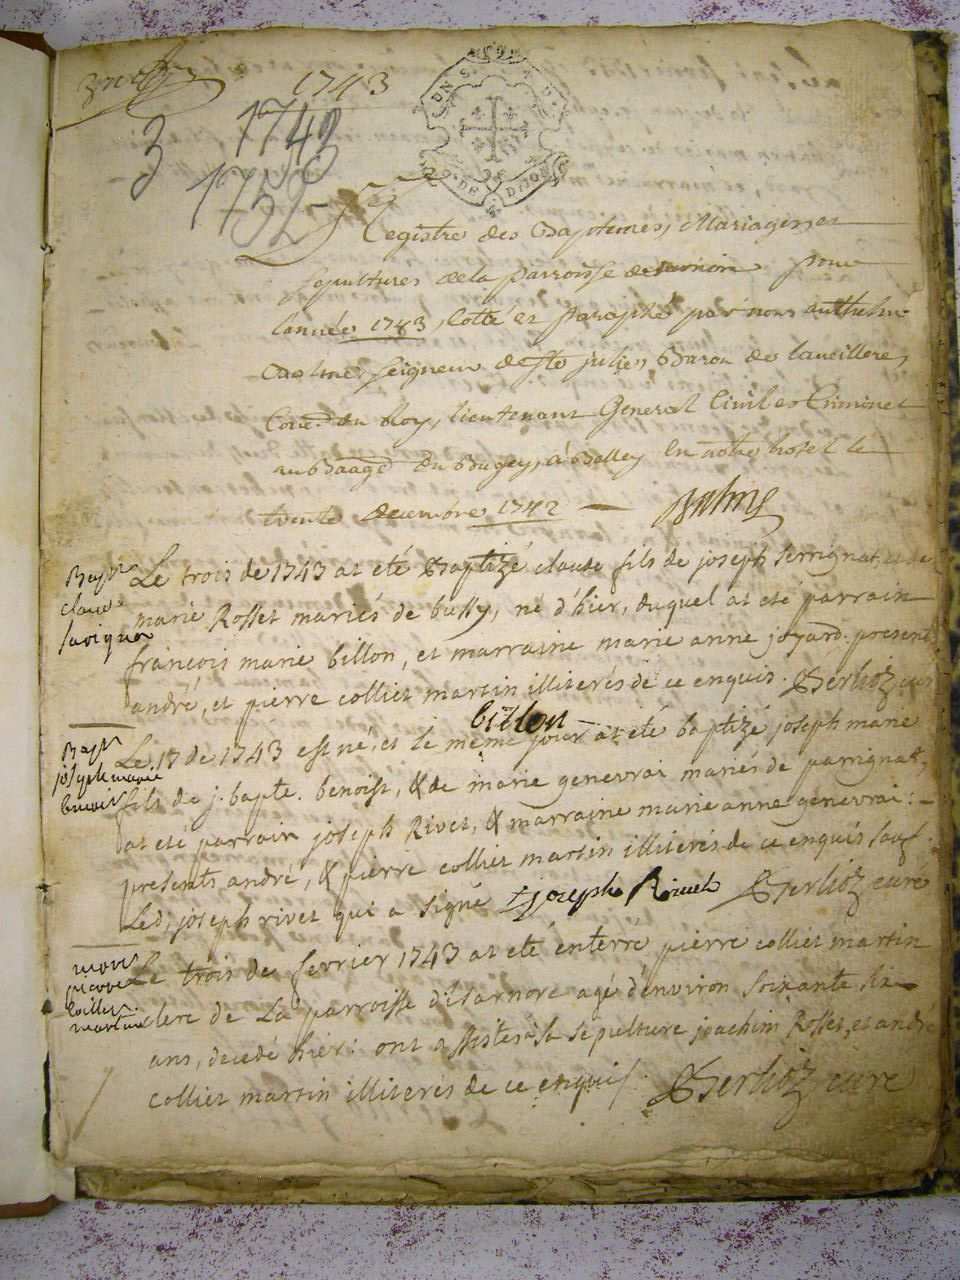 1743
3 1742
1752
GEN DE DIJON
Registre des Baptemes, Mariages, et
sepultures de la parroisse pour
l'année 1743, cotté et paraphé par nous anthelme
Balme seigneur de Ste julie, Baron de
Coner. du Roy, lieutenant General Civil et Criminel
au Baage du Bugey, a Belley En notre hotel le
trente decembre 1742
Balme
Bapt.
claude
Le trois de 1743 at eté Baptizé claude fils de joseph serrignat, et de
marie Rosset mariés de bussy, né d'hier, duquel at eté parrain
françois marie billon, et marraine marie anne joyard. presents
andré, et pierre colliet martin illiterés de ce enquis. Berlioz curé
billon
Bapt
joseph marie
benoist
Le 17 de 1743 est né, et le même jour at eté baptizé joseph marie
fils de j. bapte. benoist, & de marie genevrai mariés de parrignat,
at eté parrain joseph Rivet, & marraine marie anne genevrai:
presents andré, & pierre colliet martin illiterés de ce enquis sauf
Led, joseph rivet qui a signé + joseph Rivet Berlioz curé
mort
pierre
colliet
martin
Le trois de fevrier 1743 at eté enterré pierre colliet martin
clerc de La parroisse d'isarnore agé d'environ soixante six
ans, decedé hier: ont assistés a sa sepulture joachim Rosset, et andré
colliet martin illiterés de ce enquis. Berlioz curé